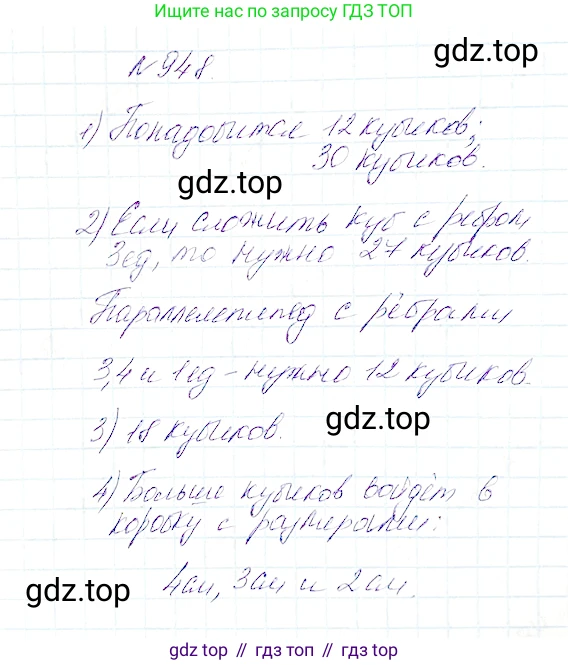 Ищите нас по запросу ГДЗ ТОП
gdz.top
№948.
1) Понадобится 12 кубиков;
30 кубиков.
gdz.top
2) Если сложить куб с ребром
3ед, то нужно 27 кубиков.
Параллелепипед с рёбрами
3,4 и 1ед - нужно 12 кубиков.
3) 18 кубиков.
gdz.top
4) Больше кубиков войдёт в
коробку с размерами:
4см, 3см и 2см.
gdz.top
gdz.top
gdz.top // гдз топ // гдз top